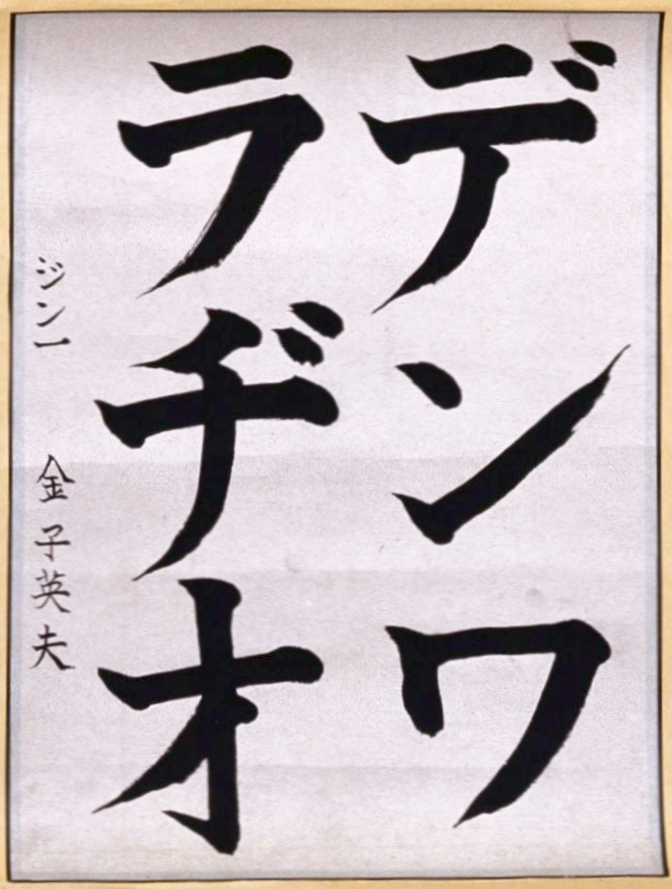 デンワ
ラヂオ
ジン一 金子英夫